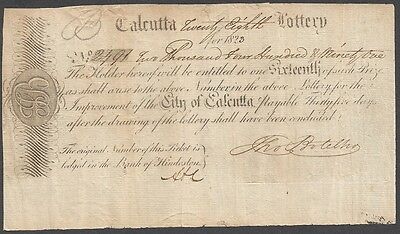 Calcutta Twenty Eighth Lottery
for 1823
No. 2491 Two Thousand Four Hundred & Ninety One
The Holder hereof will be entitled to one Sixteenth of such Prize
as shall arise to the above Number in the above Lottery for the
Improvement of the City of Calcutta, Payable Thirty five days
after the drawing of the lottery shall have been concluded.
The original Number of this Ticket is
lodged in the Bank of Hindostan
Botelho